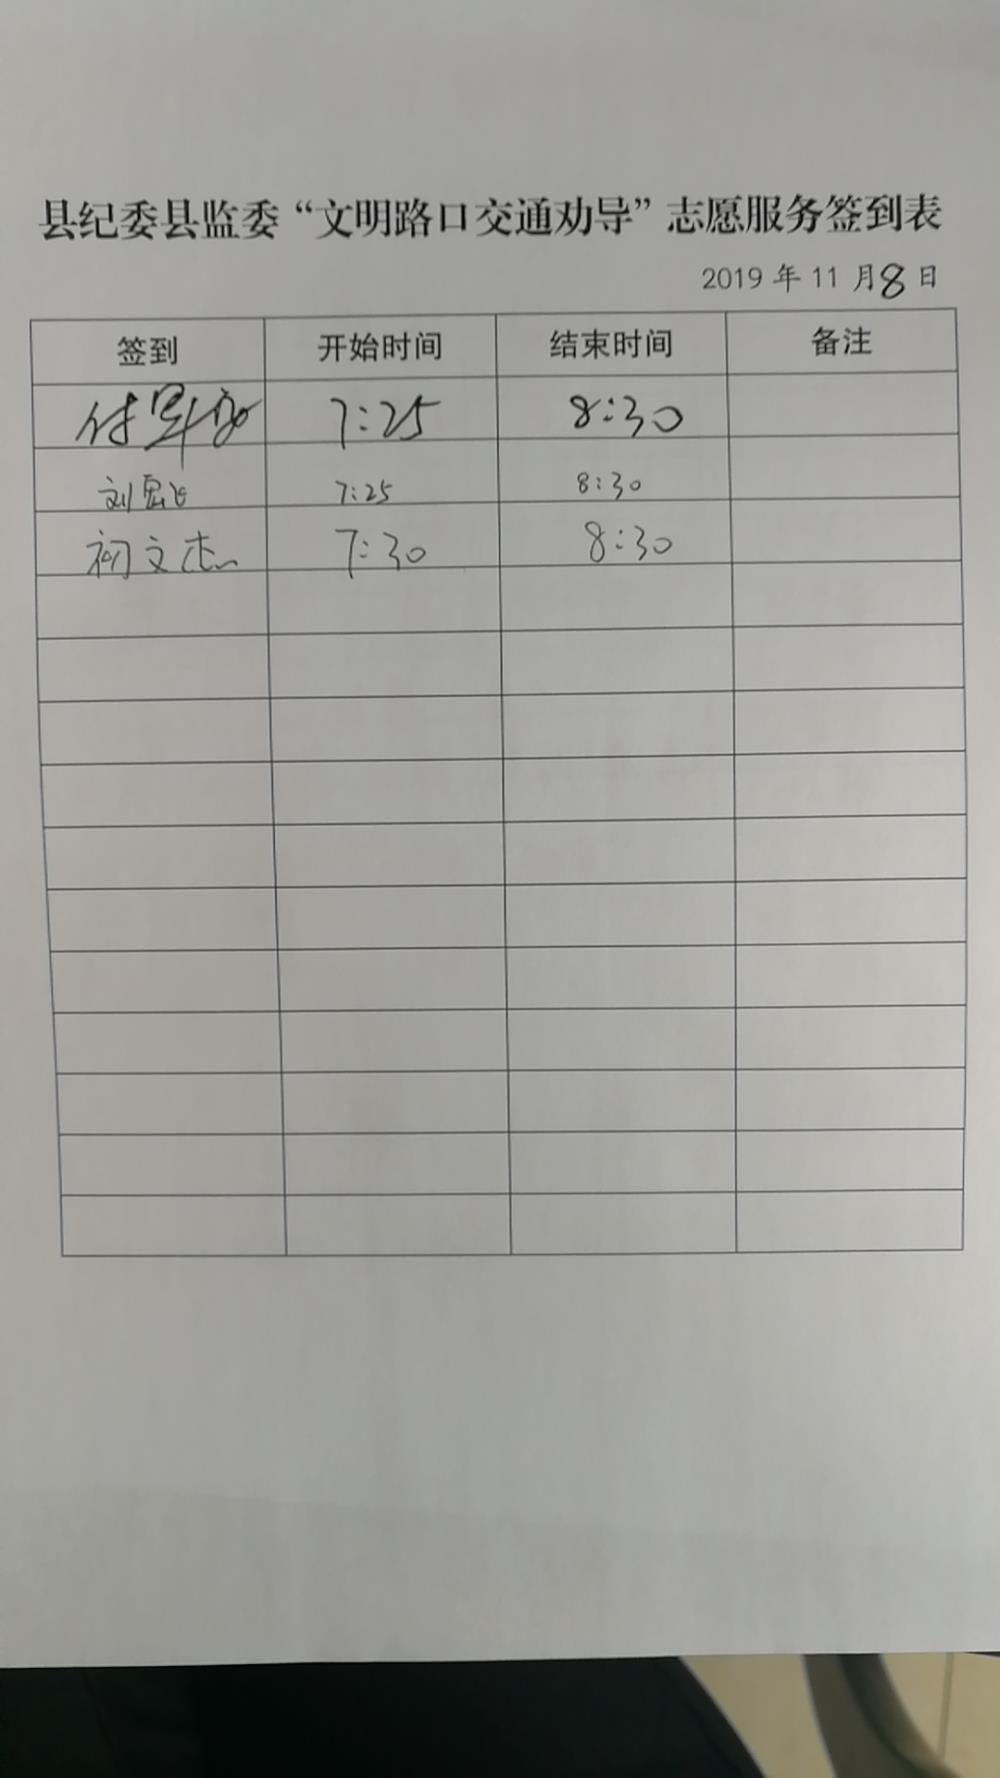 县纪委县监委“文明路口交通劝导”志愿服务签到表
2019 年 11 月 8 日
签到 开始时间 结束时间 备注
付 7:25 8:30
刘 7:25 8:30
初文杰 7:30 8:30